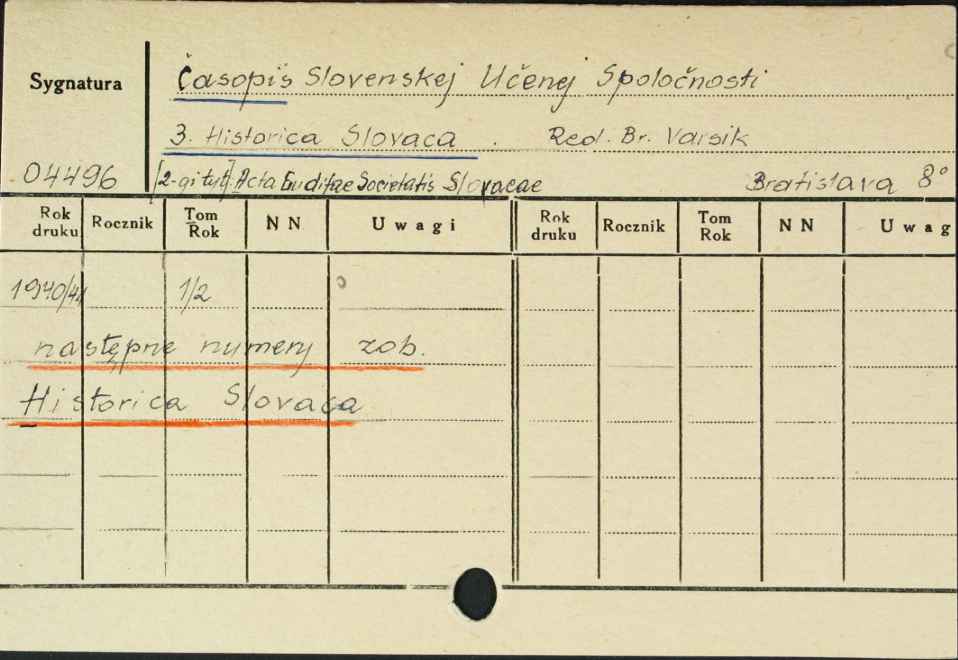 Sygnatura
Časopis Slovenskej Učenej Spoločnosti
3. Historica Slovaca . Red. Br. Varsik
04496 [2-gi tyt]. Acta Eruditae Societatis Slovacae Bratislava 8°
Rok druku Rocznik Tom Rok N N Uwagi Rok druku Rocznik Tom Rok N N Uwag
1940/41 1/2
następne numery zob.
Historica Slovaca